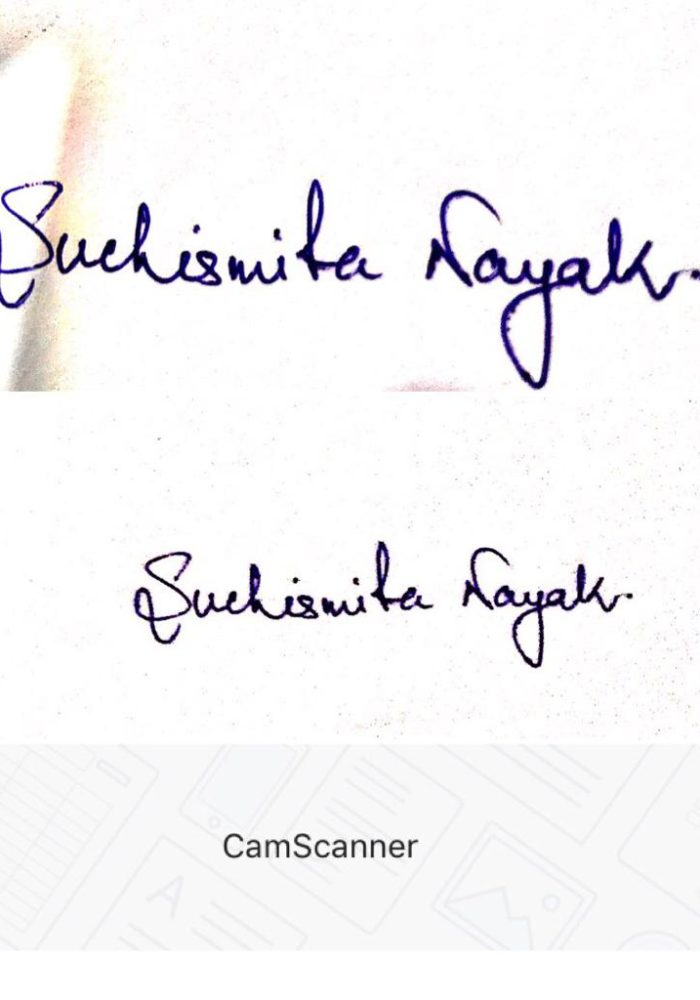 Suchismita Nayak.
Suchismita Nayak.
CamScanner